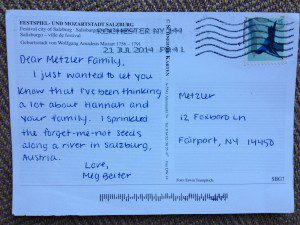 FESTSPIEL- UND MOZARTSTADT SALZBURG
Festival city of Salzburg
ROCHESTER NY
Salzbourg - ville de festival
Geburtsstadt von Wolfgang Amadeus Mozart 1756 - 1791
21 JUL 2014 PM 4 L
Dear Metzler Family,
I just wanted to let you
know that I've been thinking
a lot about Hannah and
your family. I sprinkled
the forget-me-not seeds
along a river in Salzburg,
Austria.
Love,
Meg Beiter
Metzler
12 Foxboro Ln
Fairport, NY 14450
SBG7